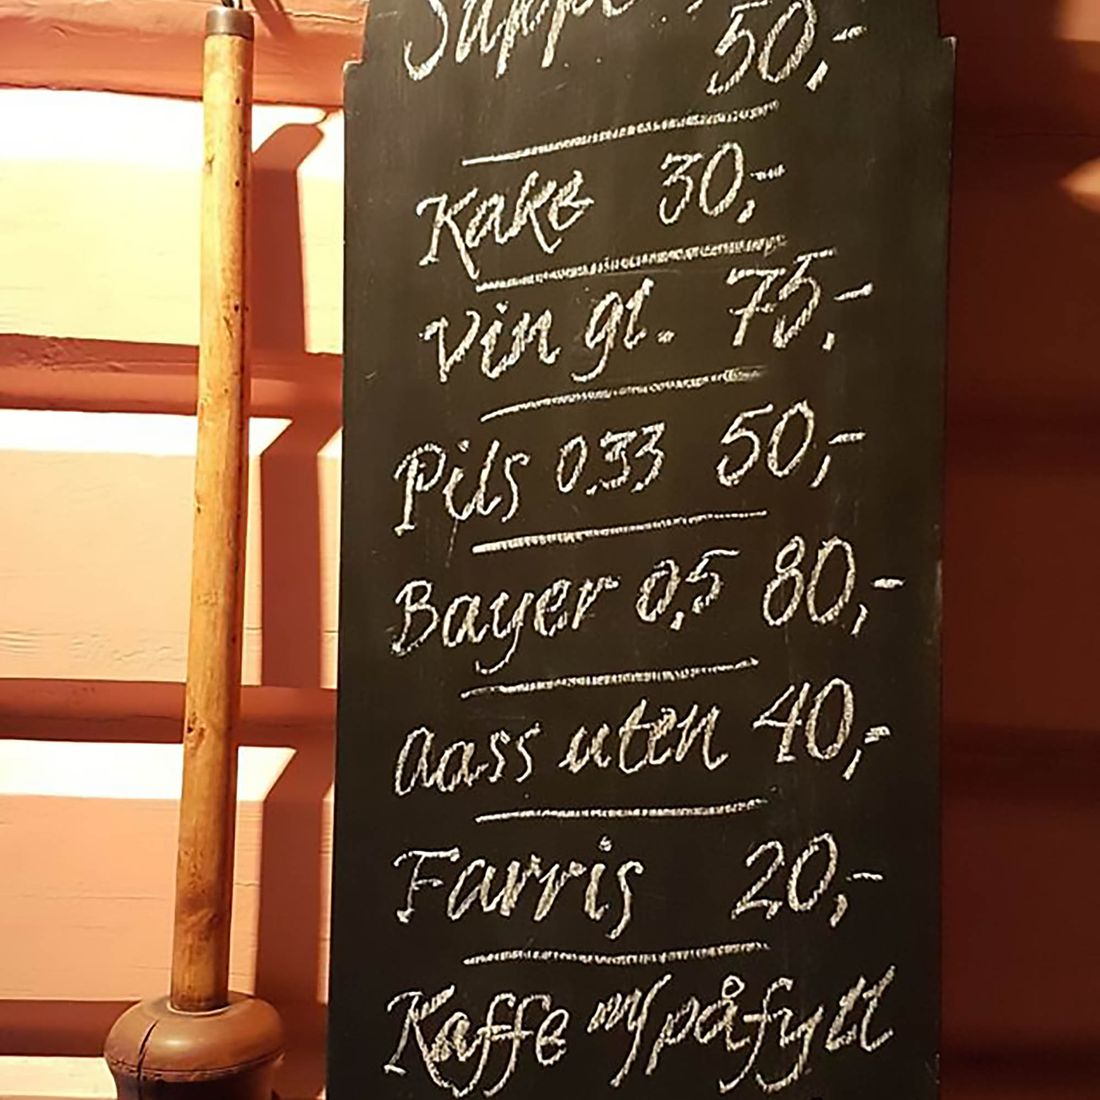 50,-
Kake 30,-
Vin gl. 75,-
Pils 0.33 50,-
Bayer 0,5 80,-
Aass uten 40,-
Farris 20,-
Kaffe m/påfyll